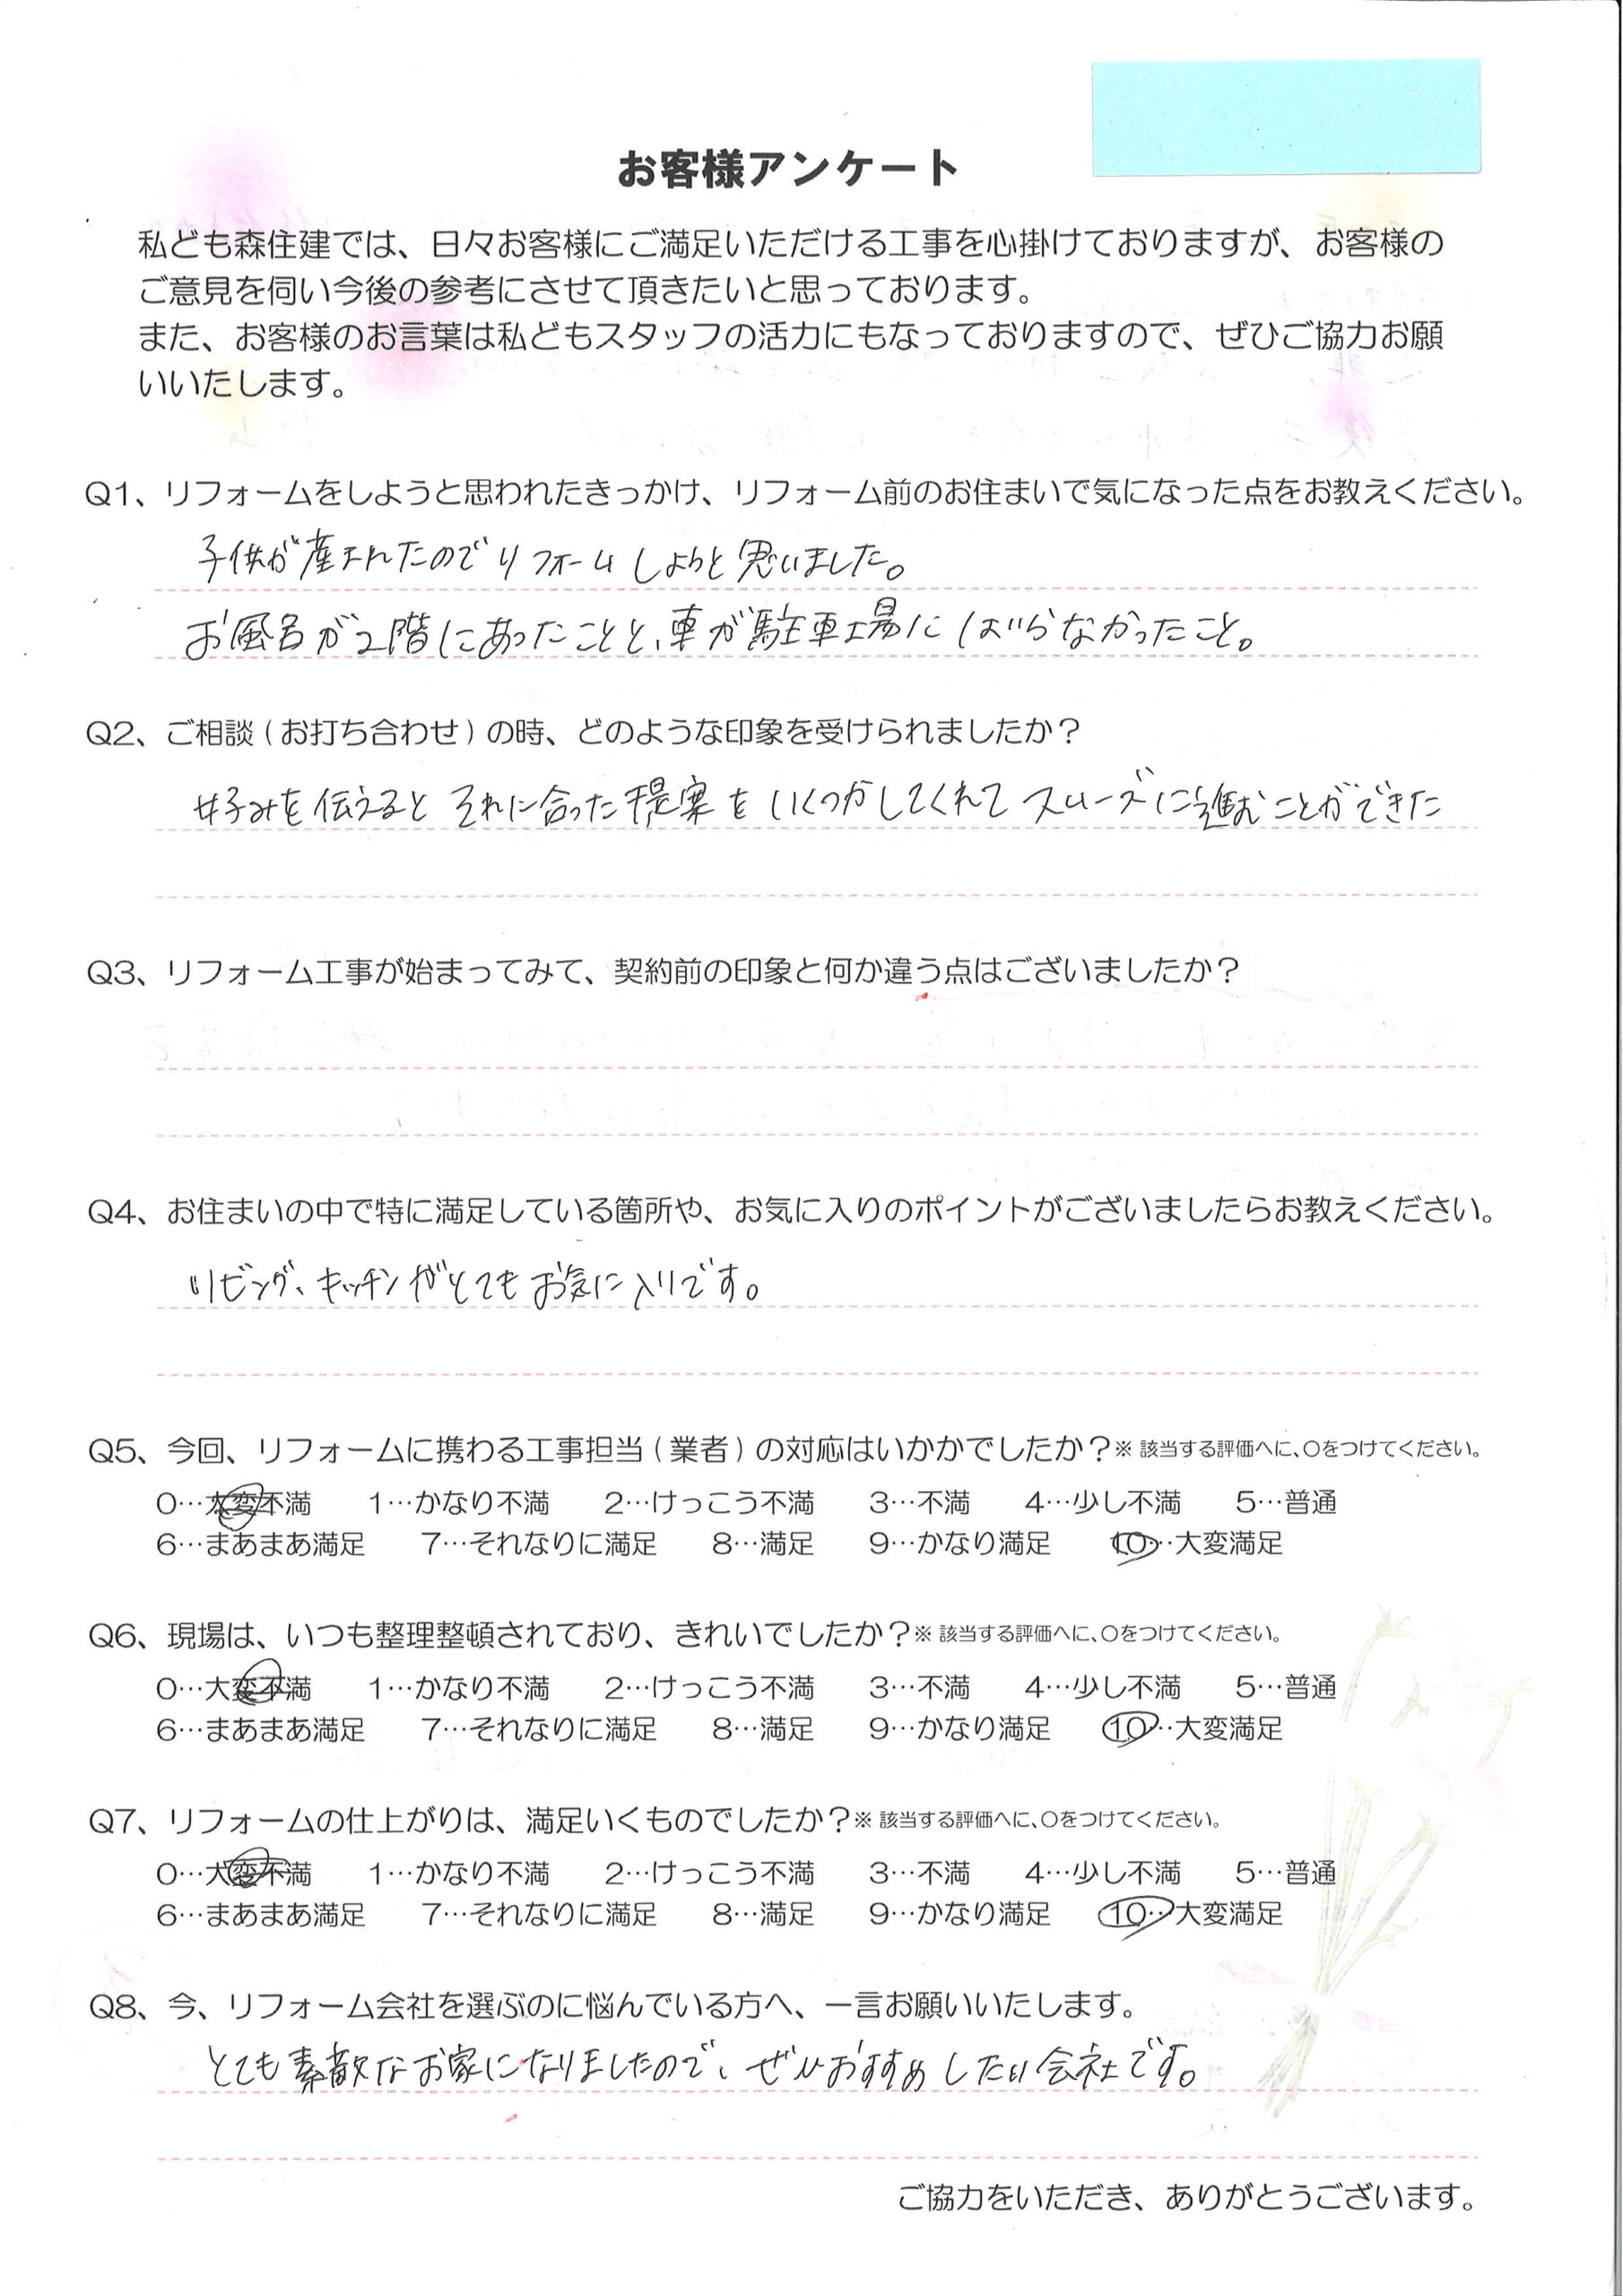 お客様アンケート
私ども森住建では、日々お客様にご満足いただける工事を心掛けておりますが、お客様の
ご意見を伺い今後の参考にさせて頂きたいと思っております。
また、お客様のお言葉は私どもスタッフの活力にもなっておりますので、ぜひご協力お願
いいたします。
Q1、リフォームをしようと思われたきっかけ、リフォーム前のお住まいで気になった点をお教えください。
子供が産まれたのでリフォームしようと思いました。
お風呂が2階にあったことと、車が駐車場にはいらなかったこと。
Q2、ご相談(お打ち合わせ)の時、どのような印象を受けられましたか？
好みを伝えるとそれに合った提案をいくつかしてくれてスムーズに進むことができた
Q3、リフォーム工事が始まってみて、契約前の印象と何か違う点はございましたか？
Q4、お住まいの中で特に満足している箇所や、お気に入りのポイントがございましたらお教えください。
リビング、キッチンがとてもお気に入りです。
Q5、今回、リフォームに携わる工事担当(業者)の対応はいかかでしたか？※ 該当する評価へに、○をつけてください。
0…大変不満 1…かなり不満 2…けっこう不満 3…不満 4…少し不満 5…普通
6…まあまあ満足 7…それなりに満足 8…満足 9…かなり満足 10…大変満足
Q6、現場は、いつも整理整頓されており、きれいでしたか？※ 該当する評価へに、○をつけてください。
0…大変不満 1…かなり不満 2…けっこう不満 3…不満 4…少し不満 5…普通
6…まあまあ満足 7…それなりに満足 8…満足 9…かなり満足 10…大変満足
Q7、リフォームの仕上がりは、満足いくものでしたか？※ 該当する評価へに、○をつけてください。
0…大変不満 1…かなり不満 2…けっこう不満 3…不満 4…少し不満 5…普通
6…まあまあ満足 7…それなりに満足 8…満足 9…かなり満足 10…大変満足
Q8、今、リフォーム会社を選ぶのに悩んでいる方へ、一言お願いいたします。
とても素敵なお家になりましたので、ぜひおすすめしたい会社です。
ご協力をいただき、ありがとうございます。